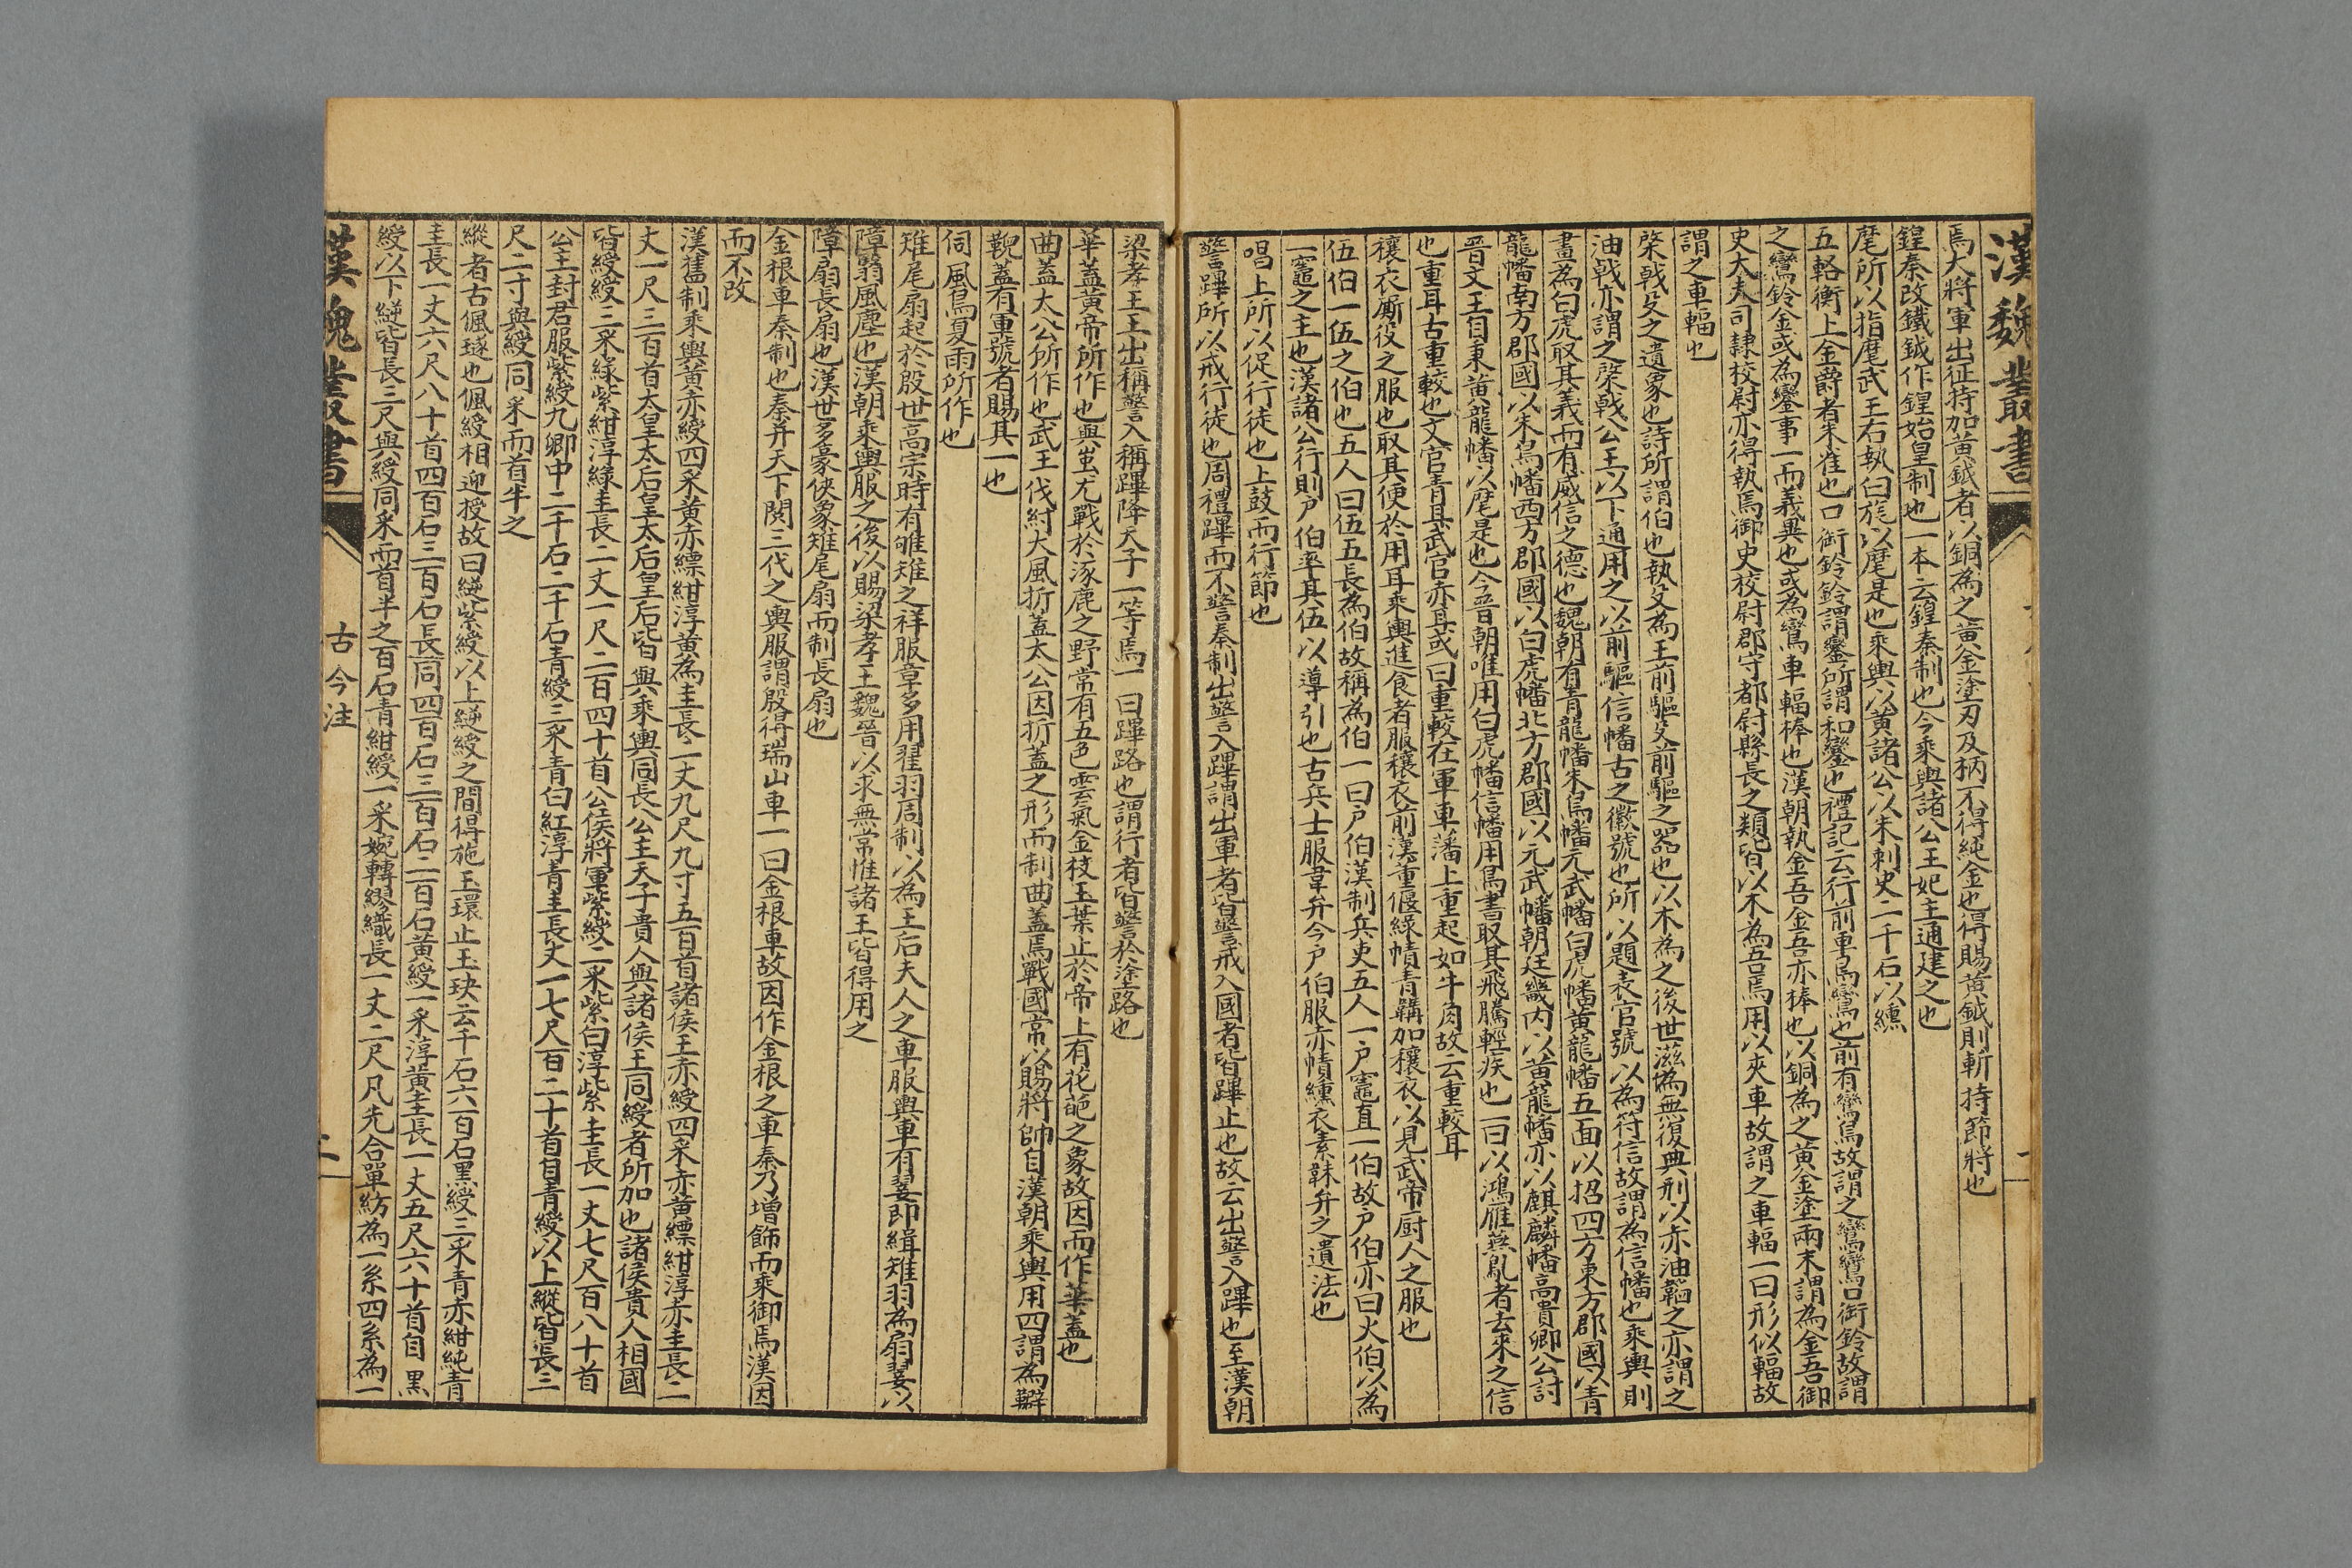 漢魏叢書
焉大將軍出征持加黄鉞者以銅為之黄金塗刃及柄不得純金也得賜黄鉞則斬持節將也
鍠秦改鐵鉞作鍠始皇制也一本云鍠秦制也今乘輿諸公王妃主通建之也
麾所以指麾武王右執白旄以麾是也乘輿以黄諸公以朱刺史二千石以纁
五輅衡上金爵者朱雀也口銜鈴鈴謂鑾所謂和鑾也禮記云行前朱鳥鸞也前有鸞鳥故謂之鸞鸞口銜鈴故謂
之鸞鈴金或為鑾事一而義異也或為鸞車輻棒也漢朝執金吾金吾亦棒也以銅為之黄金塗兩末謂為金吾御
史大夫司隸校尉亦得執焉御史校尉郡守都尉縣長之類皆以木為吾焉用以夾車故謂之車輻一曰形似輻故
謂之車輻也
棨戟殳之遺象也詩所謂伯也執殳為王前驅殳前驅之器也以木為之後世滋為無復典刑以赤油韜之亦謂之
油戟亦謂之棨戟公王以下通用之以前驅信幡古之徽號也所以題表官號以為符信故謂為信幡也乘輿則
畫為白虎取其義而有威信之德也魏朝有青龍幡朱鳥幡元武幡白虎幡黄龍幡五面以招四方東方郡國以青
龍幡南方郡國以朱鳥幡西方郡國以白虎幡北方郡國以元武幡朝廷畿内以黄龍幡亦以麒麟幡高貴卿公討
晉文王自秉黄龍幡以麾是也今晉朝唯用白虎幡信幡用鳥書取其飛騰輕疾也一曰以鴻雁燕鳦者去來之信
也重耳古重較也文官青耳武官赤耳或曰重較在軍車藩上重起如牛角故云重較耳
穰衣厮役之服也取其便於用耳乘輿進食者服穰衣前漢董偃綠幘青韝加穰衣以見武帝厨人之服也
伍伯一伍之伯也五人曰伍五長為伯故稱為伯一曰户伯漢制兵吏五人一户竈直一伯故户伯亦曰火伯以為
一竈之主也漢諸公行則户伯率其伍以導引也古兵士服韋弁今户伯服赤幘纁衣素韎弁之遺法也
唱上所以促行徒也上鼓而行節也
警蹕所以戒行徒也周禮蹕而不警秦制出警入蹕謂出軍者皆警戒入國者皆蹕止也故云出警入蹕也至漢朝
梁孝王王出稱警入稱蹕降天子一等焉一曰蹕路也謂行者皆警於塗路也
華蓋黄帝所作也與蚩尤戰於涿鹿之野常有五色雲氣金枝玉葉止於帝上有花葩之象故因而作華蓋也
曲蓋太公所作也武王伐紂大風折蓋太公因折蓋之形而制曲蓋焉戰國常以賜將帥自漢朝乘輿用四謂為䡟
䡝蓋有軍號者賜其一也
伺風鳥夏雨所作也
雉尾扇起於殷世高宗時有雊雉之祥服章多用翟羽周制以為王后夫人之車服輿車有翣即緝雉羽為扇翣以
障翳風塵也漢朝乘輿服之後以賜梁孝王魏晉以來無常惟諸王皆得用之
障扇長扇也漢世多豪俠象雉尾扇而制長扇也
金根車秦制也秦并天下閱三代之輿服謂殷得瑞山車一曰金根車故因作金根之車秦乃增飾而乘御焉漢因
而不改
漢舊制乘輿黄赤綬四采黄赤縹紺淳黄為圭長二丈九尺九寸五百首諸侯王赤綬四采赤黄縹紺淳赤圭長二
丈一尺三百首太皇太后皇太后皇后皆與乘輿同長公主天子貴人與諸侯王同綬者所加也諸侯貴人相國
皆綬綬二采綠紫紺淳綠圭長二丈一尺二百四十首公侯將軍紫綬二采紫白淳紫圭長一丈七尺百八十首
公主封君服紫綬九卿中二千石二千石青綬三采青白紅淳青圭長丈一七尺百二十首自青綬以上縱皆長三
尺二寸與綬同采而首半之
縱者古佩璲也佩綬相迎授故曰䋽紫綬以上䋽綬之間得施玉環止玉玦云千石六百石黑綬三采青赤紺純青
圭長一丈六尺八十首四百石三百石長同四百石三百石二百石黄綬一采淳黄圭長一丈五尺六十首自黑
綬以下䋽皆長三尺與綬同采而首半之百石青紺綬一采婉轉繆織長一丈二尺凡先合單紡為一系四系為一
漢魏叢書
古今注